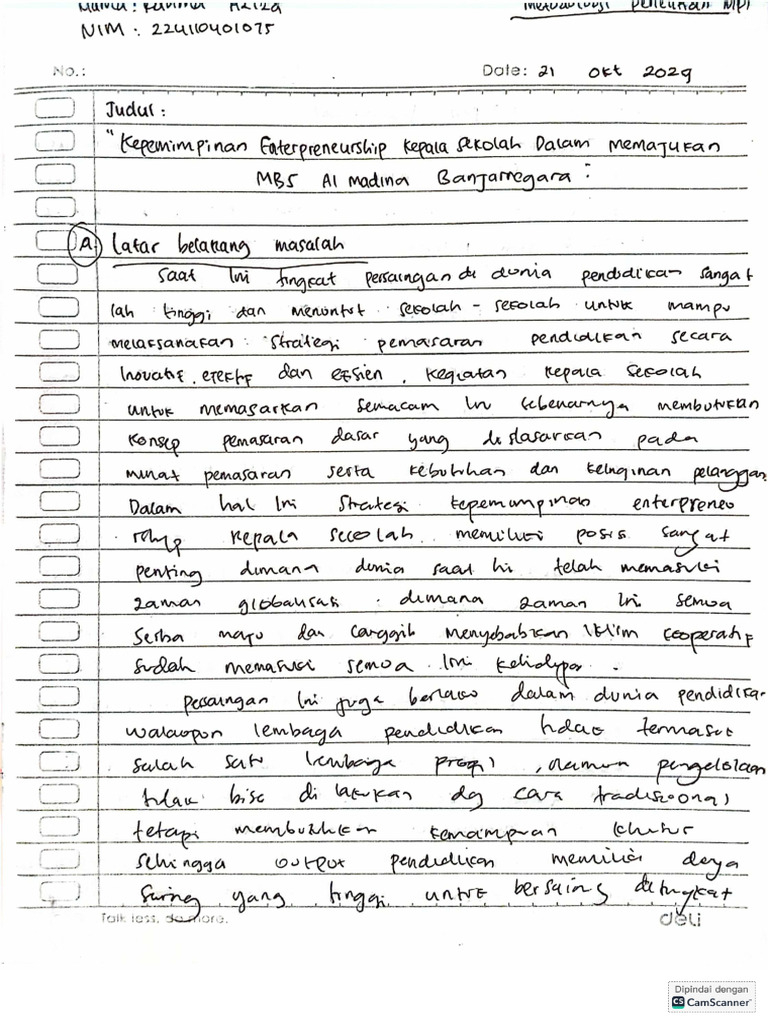 NIM : 224110401075
No.: Date: 21 Okt 2029
Judul :
"Kepemimpinan Enterpreneurship Kepala Sekolah Dalam Memajukan
MBS Al Madina Banjarnegara"
A Latar belakang masalah
Saat ini tingkat persaingan di dunia pendidikan sangat
lah tinggi dan menuntut sekolah - sekolah untuk mampu
melaksanakan strategi pemasaran pendidikan secara
Inovatif, efektif dan efisien, kegiatan kepala sekolah
untuk memasarkan semacam ini sebenarnya membutuhkan
konsep pemasaran dasar yang didasarkan pada
minat pemasaran serta kebutuhan dan keinginan pelanggan
Dalam hal ini strategi kepemimpinan enterpreneu
rship kepala sekolah memiliki posisi sangat
penting dimana dunia saat ini telah memasuki
zaman globalisasi. dimana zaman ini semua
serba maju dan canggih menyebabkan iklim kooperatif
sudah memasuki semua lini kehidupan.
persaingan ini juga berlaku dalam dunia pendidika-
walaupun lembaga pendidikan tidak termasuk
salah satu lembaga , namun pengelolaan
tidak bisa di lakukan dg cara tradisional
tetapi membutuhkan kemampuan khusus
sehingga output pendidikan memiliki daya
saing yang tinggi untuk bersaing ditingkat
Talk less, do more. deli
Dipindai dengan
CS CamScanner